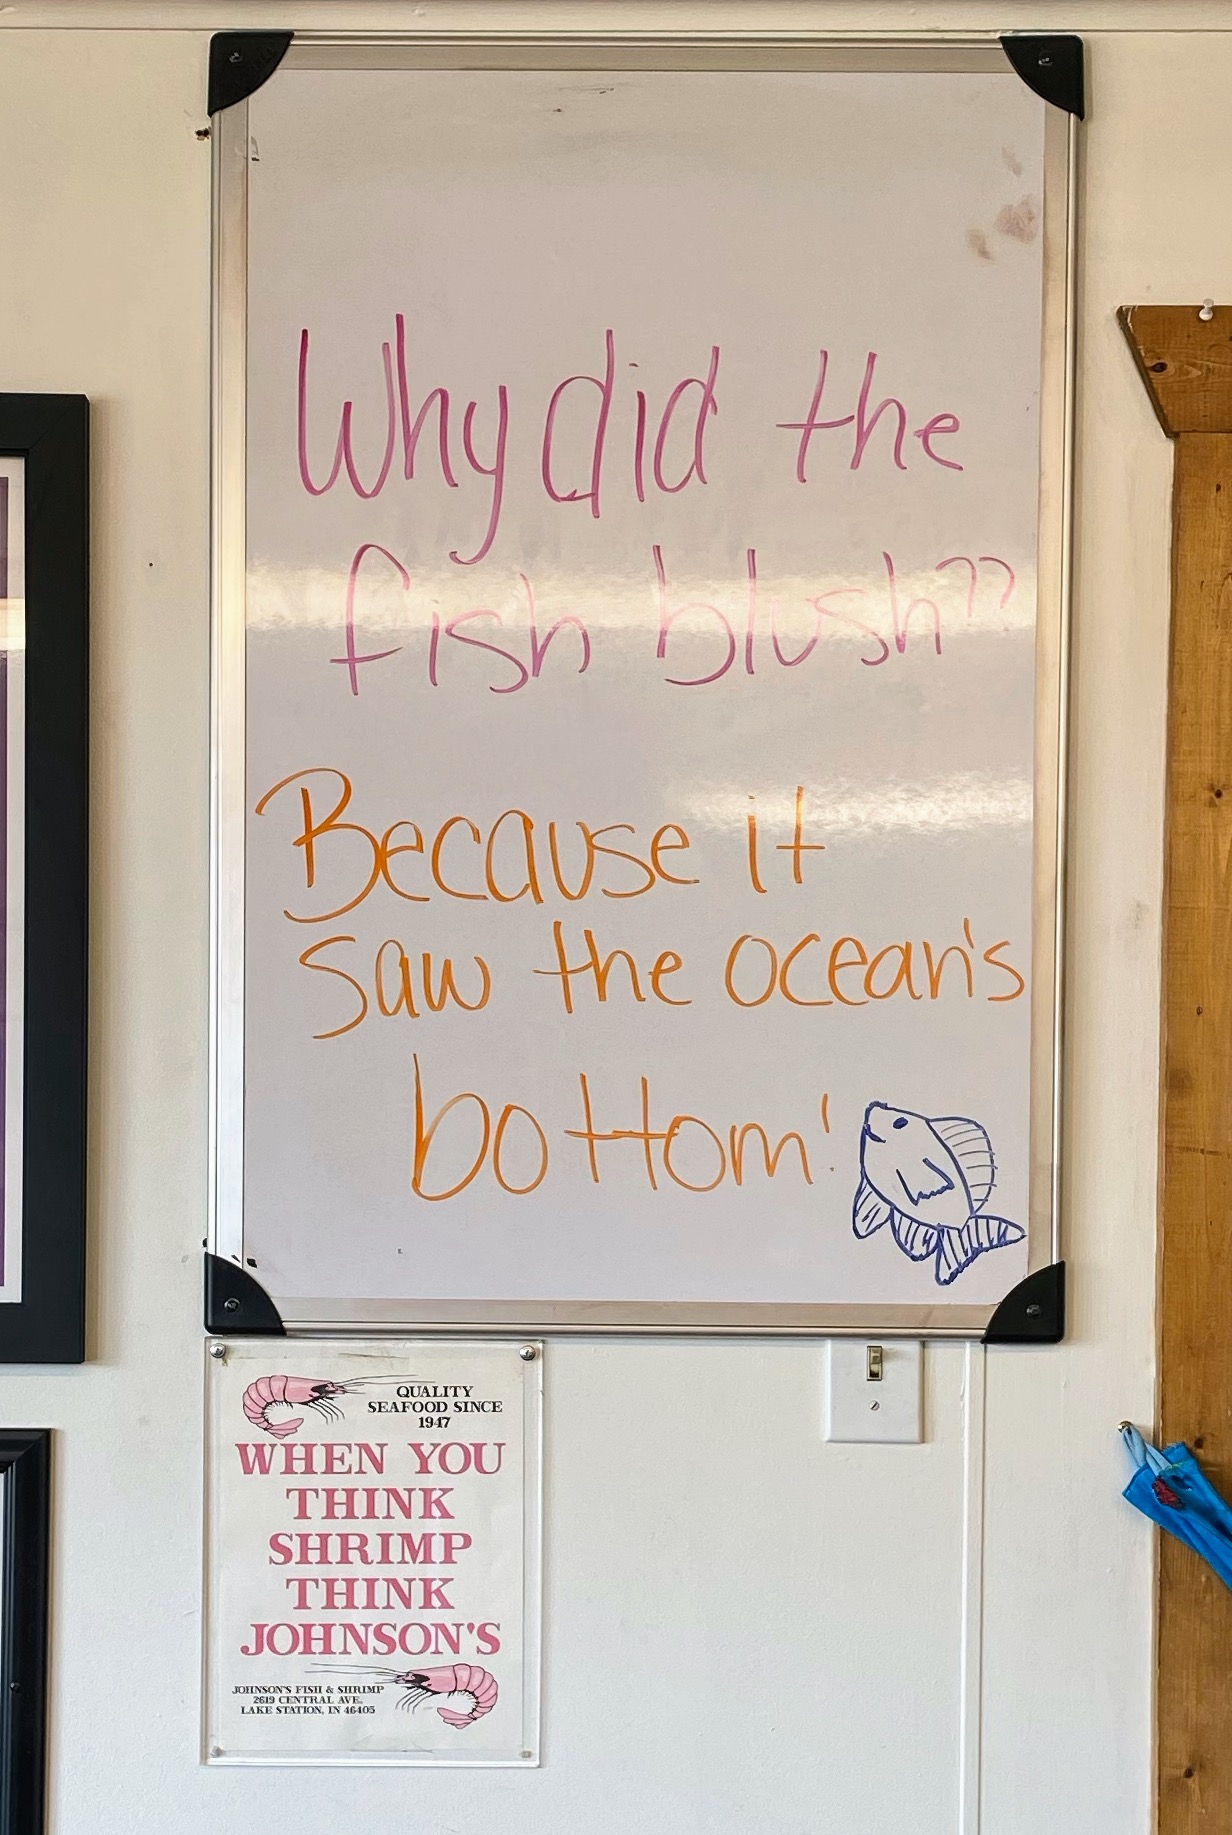 Why did the
fish blush??
Because it
saw the ocean's
bottom!
QUALITY
SEAFOOD SINCE
1947
WHEN YOU
THINK
SHRIMP
THINK
JOHNSON'S
JOHNSON'S FISH & SHRIMP
2619 CENTRAL AVE.
LAKE STATION, IN 46405